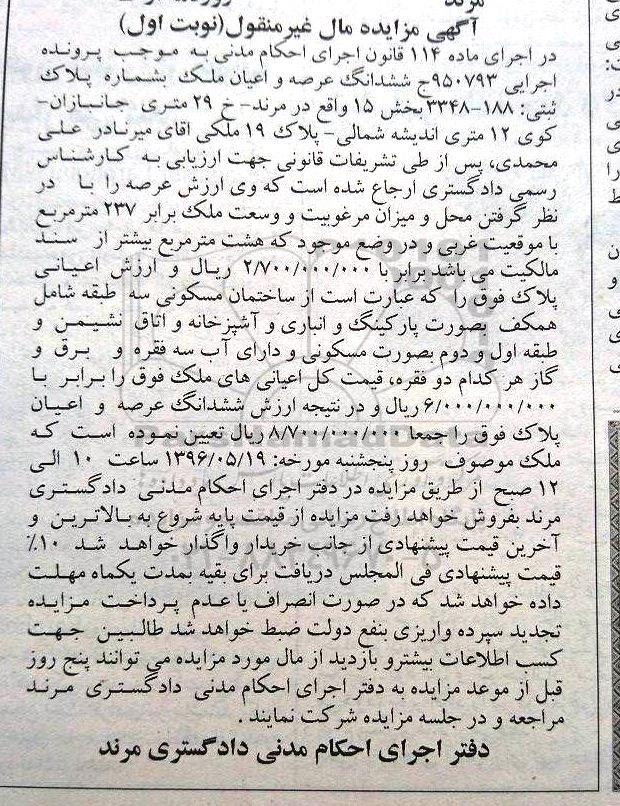 مرند
آگهی مزایده مال غیرمنقول(نوبت اول)
در اجرای ماده ۱۱۴ قانون اجرای احکام مدنی به موجب پرونده
اجرایی ۹۵۰۷۹۳ج ششدانگ عرصه و اعیان ملک بشماره پلاک
ثبتی: ۱۸۸-۳۳۴۸ بخش ۱۵ واقع در مرند- خ ۲۹ متری جانبازان-
کوی ۱۲ متری اندیشه شمالی- پلاک ۱۹ ملکی اقای میرنادر علی
محمدی، پس از طی تشریفات قانونی جهت ارزیابی به کارشناس
رسمی دادگستری ارجاع شده است که وی ارزش عرصه را با در
نظر گرفتن محل و میزان مرغوبیت و وسعت ملک برابر ۲۳۷ مترمربع
با موقعیت غربی و در وضع موجود که هشت مترمربع بیشتر از سند
مالکیت می باشد برابر با ۲/۷۰۰/۰۰۰/۰۰۰ ریال و ارزش اعیانی
پلاک فوق را که عبارت است از ساختمان مسکونی سه طبقه شامل
همکف بصورت پارکینگ و انباری و آشپزخانه و اتاق نشیمن و
طبقه اول و دوم بصورت مسکونی و دارای آب سه فقره و برق و
گاز هر کدام دو فقره، قیمت کل اعیانی های ملک فوق را برابر با
۶/۰۰۰/۰۰۰/۰۰۰ ریال و در نتیجه ارزش ششدانگ عرصه و اعیان
پلاک فوق را جمعا ۸/۷۰۰/۰۰۰/۰۰۰ ریال تعیین نموده است که
ملک موصوف روز پنجشنبه مورخه: ۱۳۹۶/۰۵/۱۹ ساعت ۱۰ الی
۱۲ صبح از طریق مزایده در دفتر اجرای احکام مدنی دادگستری
مرند بفروش خواهد رفت مزایده از قیمت پایه شروع به بالاترین و
آخرین قیمت پیشنهادی از جانب خریدار واگذار خواهد شد ۱۰٪
قیمت پیشنهادی فی المجلس دریافت برای بقیه بمدت یکماه مهلت
داده خواهد شد که در صورت انصراف یا عدم پرداخت مزایده
تجدید سپرده واریزی بنفع دولت ضبط خواهد شد طالبین جهت
کسب اطلاعات بیشترو بازدید از مال مورد مزایده می توانند پنج روز
قبل از موعد مزایده به دفتر اجرای احکام مدنی دادگستری مرند
مراجعه و در جلسه مزایده شرکت نمایند .
دفتر اجرای احکام مدنی دادگستری مرند